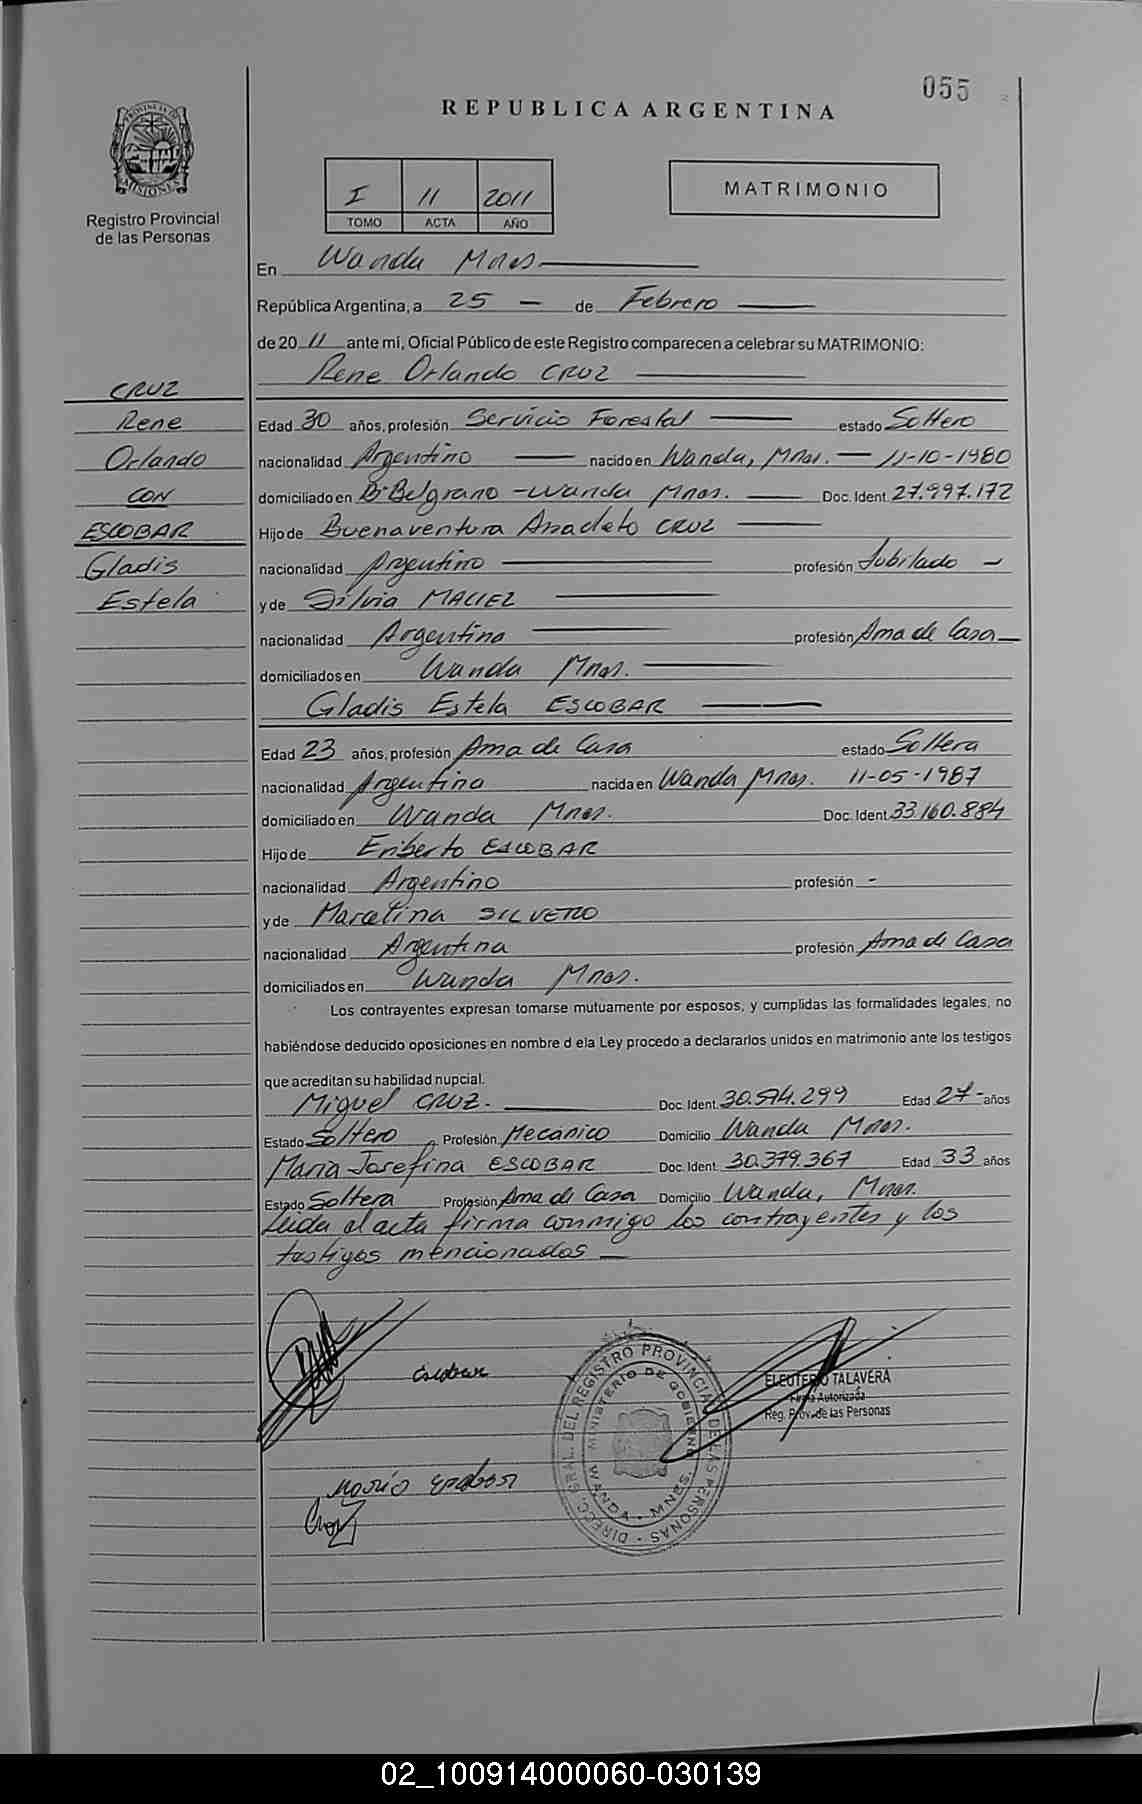 055
REPUBLICA ARGENTINA
PROVINCIA DE
MISIONES
Registro Provincial
de las Personas
I 11 2011
TOMO ACTA AÑO
MATRIMONIO
En Wanda Mnes
República Argentina, a 25 - de Febrero
de 20 11 ante mi, Oficial Público de este Registro comparecen a celebrar su MATRIMONIO:
Rene Orlando CRUZ
CRUZ
Rene
Orlando
CON
ESCOBAR
Gladis
Estela
Edad 30 años, profesión Servicio Forestal estado Soltero
nacionalidad Argentino nacido en Wanda, Mnes. 11-10-1980
domiciliado en Bº Belgrano - Wanda Mnes. Doc. Ident. 27.997.172
Hijo de Buenaventura CRUZ
nacionalidad Argentino profesión Jubilado -
y de Silvia MACIEZ
nacionalidad Argentina profesión Ama de Casa
domiciliados en Wanda Mnes.
Gladis Estela ESCOBAR
Edad 23 años, profesión Ama de Casa estado Soltera
nacionalidad Argentina nacida en Wanda Mnes. 11-05-1987
domiciliado en Wanda Mnes. Doc. Ident. 33.160.884
Hijo de Eriberto ESCOBAR
nacionalidad Argentino profesión -
y de Marcelina SILVERO
nacionalidad Argentina profesión Ama de Casa
domiciliados en Wanda Mnes.
Los contrayentes expresan tomarse mutuamente por esposos, y cumplidas las formalidades legales, no
habiéndose deducido oposiciones en nombre d ela Ley procedo a declararlos unidos en matrimonio ante los testigos
que acreditan su habilidad nupcial.
Miguel CRUZ. Doc. Ident. 30.574.299 Edad 27 - años
Estado Soltero Profesión Mecánico Domicilio Wanda Mnes.
Maria Josefina ESCOBAR Doc. Ident. 30.379.367 Edad 33 años
Estado Soltera Profesión Ama de Casa Domicilio Wanda, Mnes.
Leida el acta firma conmigo los contrayentes y los
testigos mencionados
Escobar
ELEUTERIO TALAVERA
Firma Autorizada
Reg. Prov. de las Personas
DIRECC. GRAL. DEL REGISTRO PROVINCIAL DE LAS PERSONAS
MINISTERIO DE GOBIERNO
WANDA - MNES.
María Escobar
Cruz
02_100914000060-030139